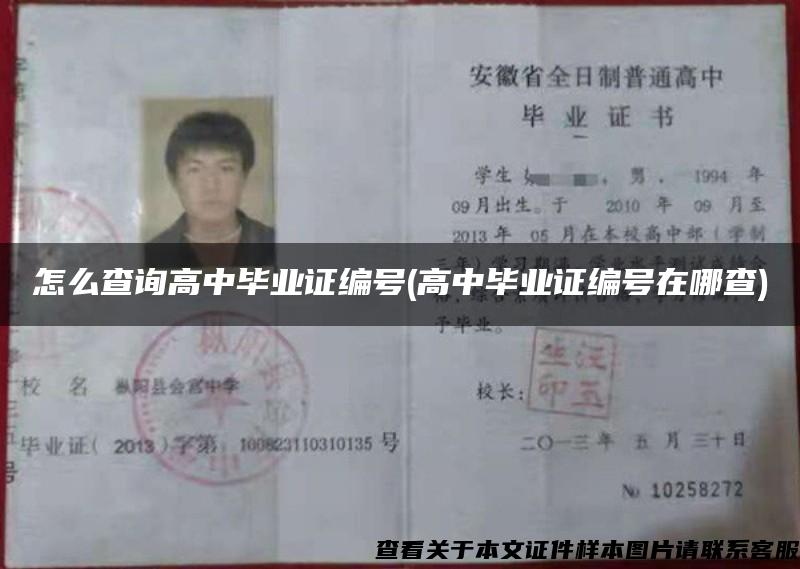 安徽省全日制普通高中
毕业证书
学生
,男,1994年
09月出生。于 2010 年 09 月至
2013年 05 月在本校高中部(学制
怎么查询高中毕业证编号(高中毕业证编号在哪查)
予毕业。
校 名 枞阳县会宫中学
校长:
毕业证( 2013 )字第 100823110310135 号
二〇一三年 五 月 三十日
№ 10258272
查看关于本文证件样本图片请联系客服